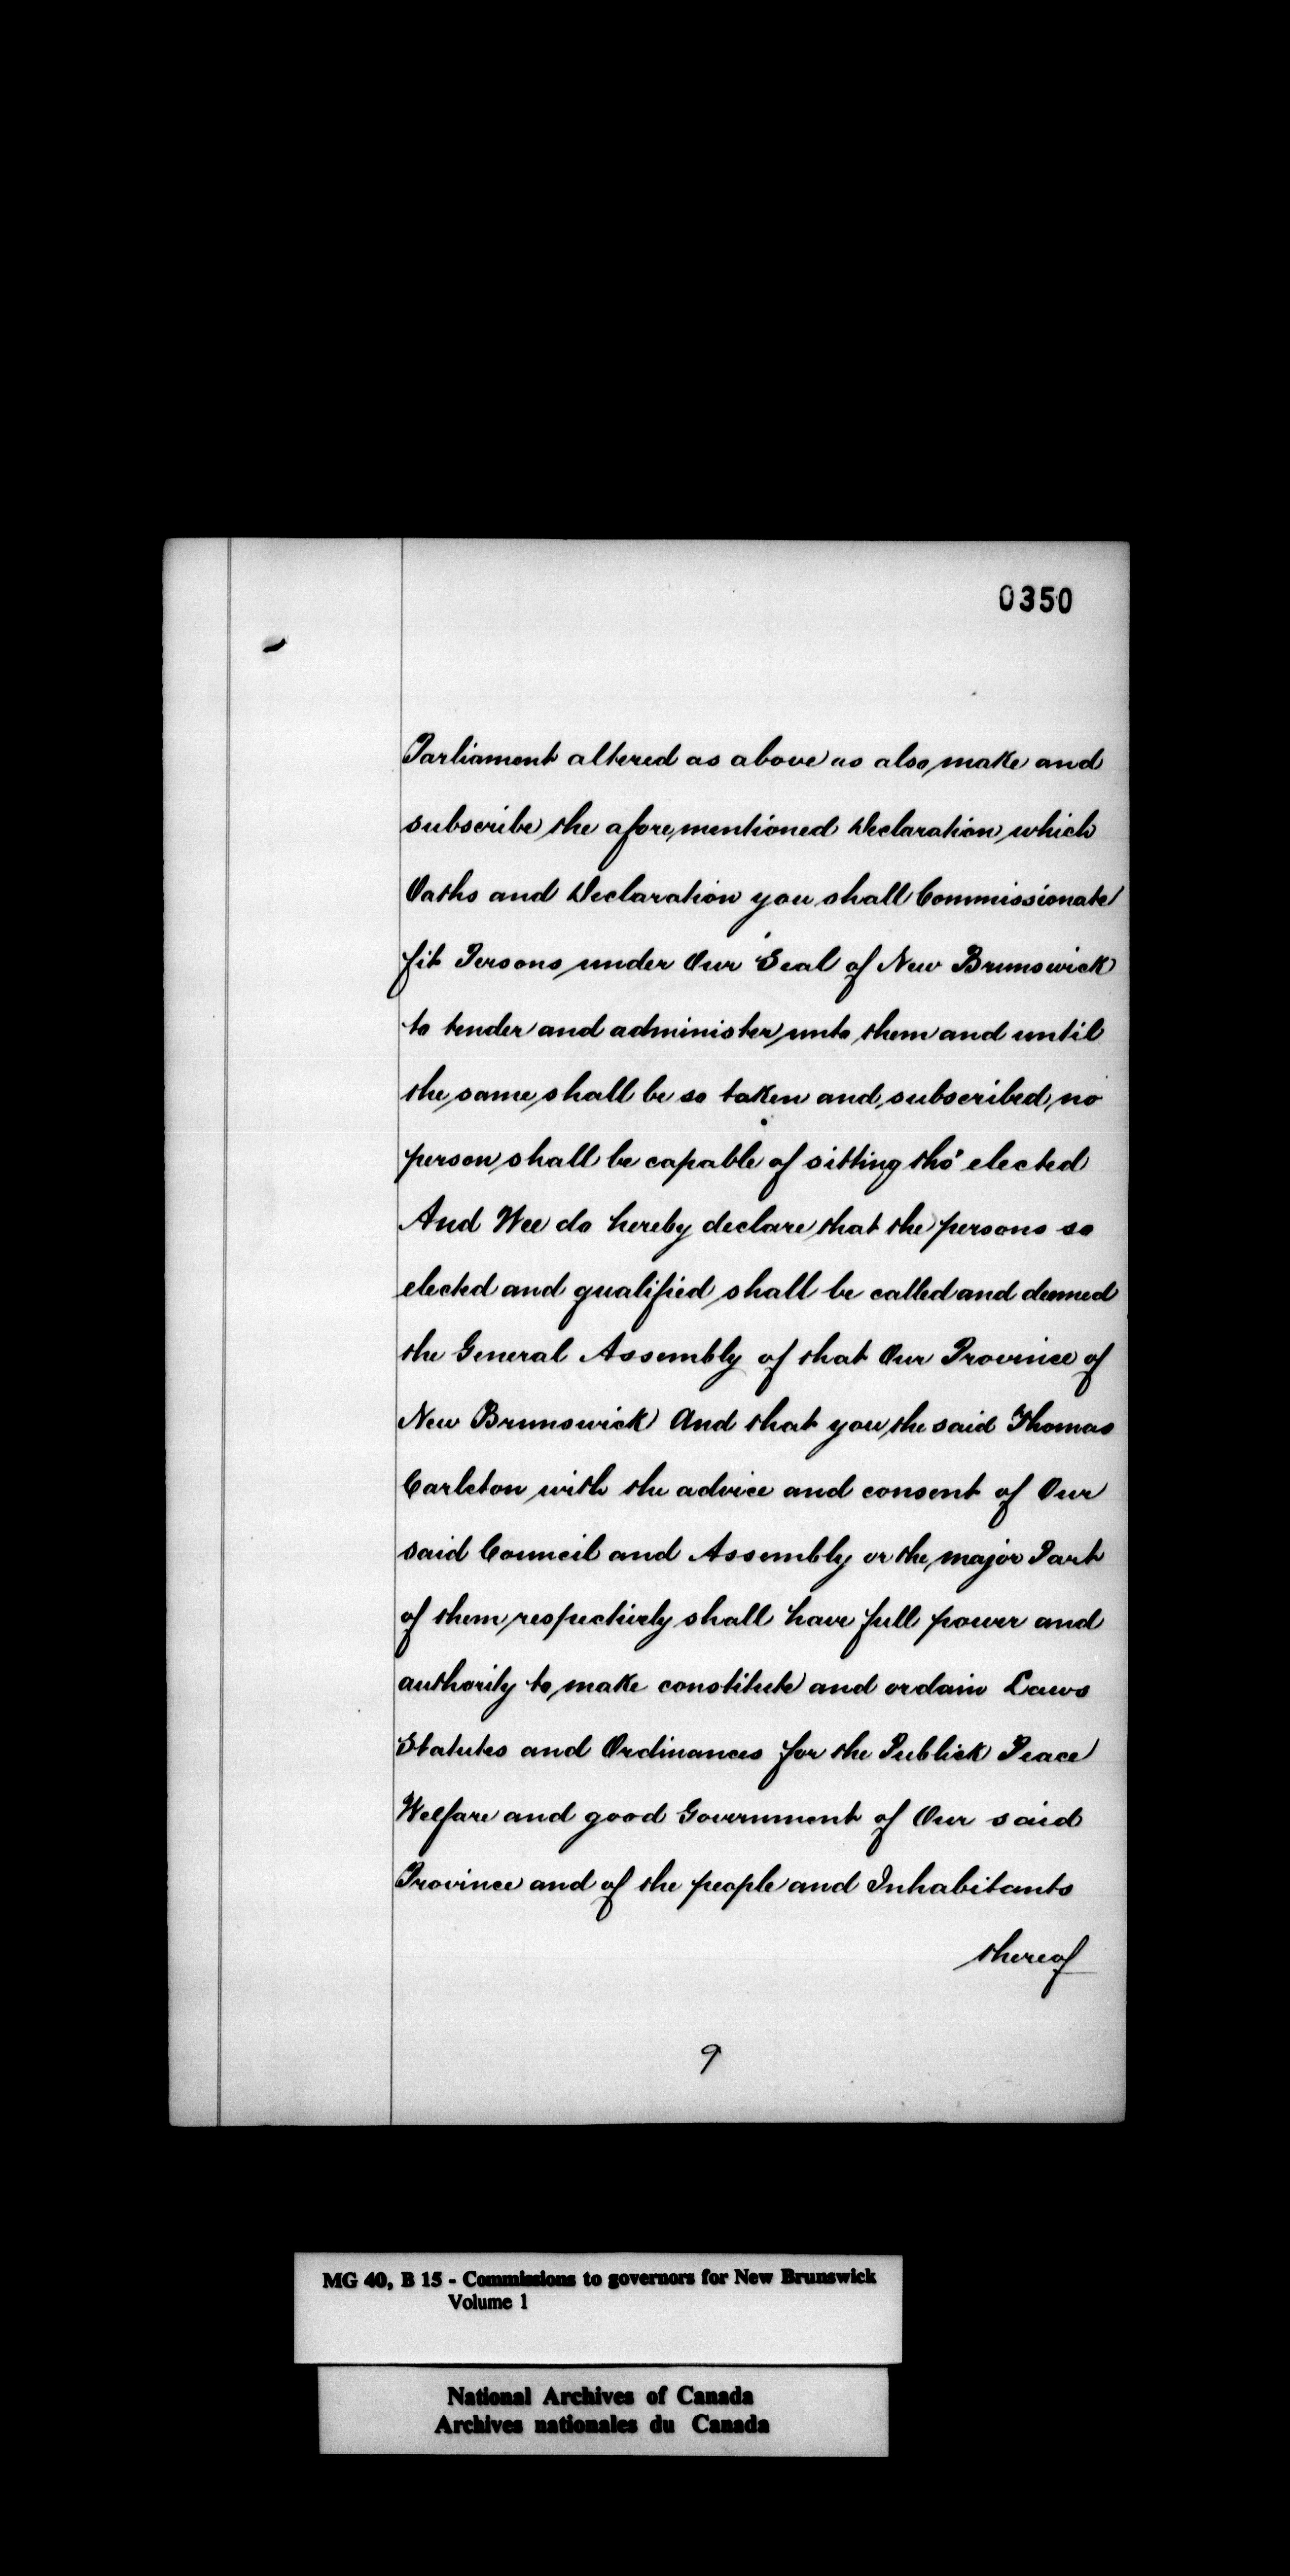 0350
Parliament altered as above as also make and
subscribe the aforementioned Declaration which
Oaths and Declaration you shall Commissionate
fit Persons under Our Seal of New Brunswick
to tender and administer unto them and until
the same shall be so taken and subscribed no
person shall be capable of sitting tho' elected
And Wee do hereby declare that the persons so
elected and qualified shall be called and deemed
the General Assembly of that Our Province of
New Brunswick And that you the said Thomas
Carleton with the advice and consent of Our
said Council and Assembly or the major Part
of them respectively shall have full power and
authority to make constitute and ordain Laws
Statutes and Ordinances for the Publick Peace
Welfare and good Government of Our said
Province and of the people and Inhabitants
thereof
9
MG 40, B 15 - Commissions to governors for New Brunswick
Volume 1
National Archives of Canada
Archives nationales du Canada